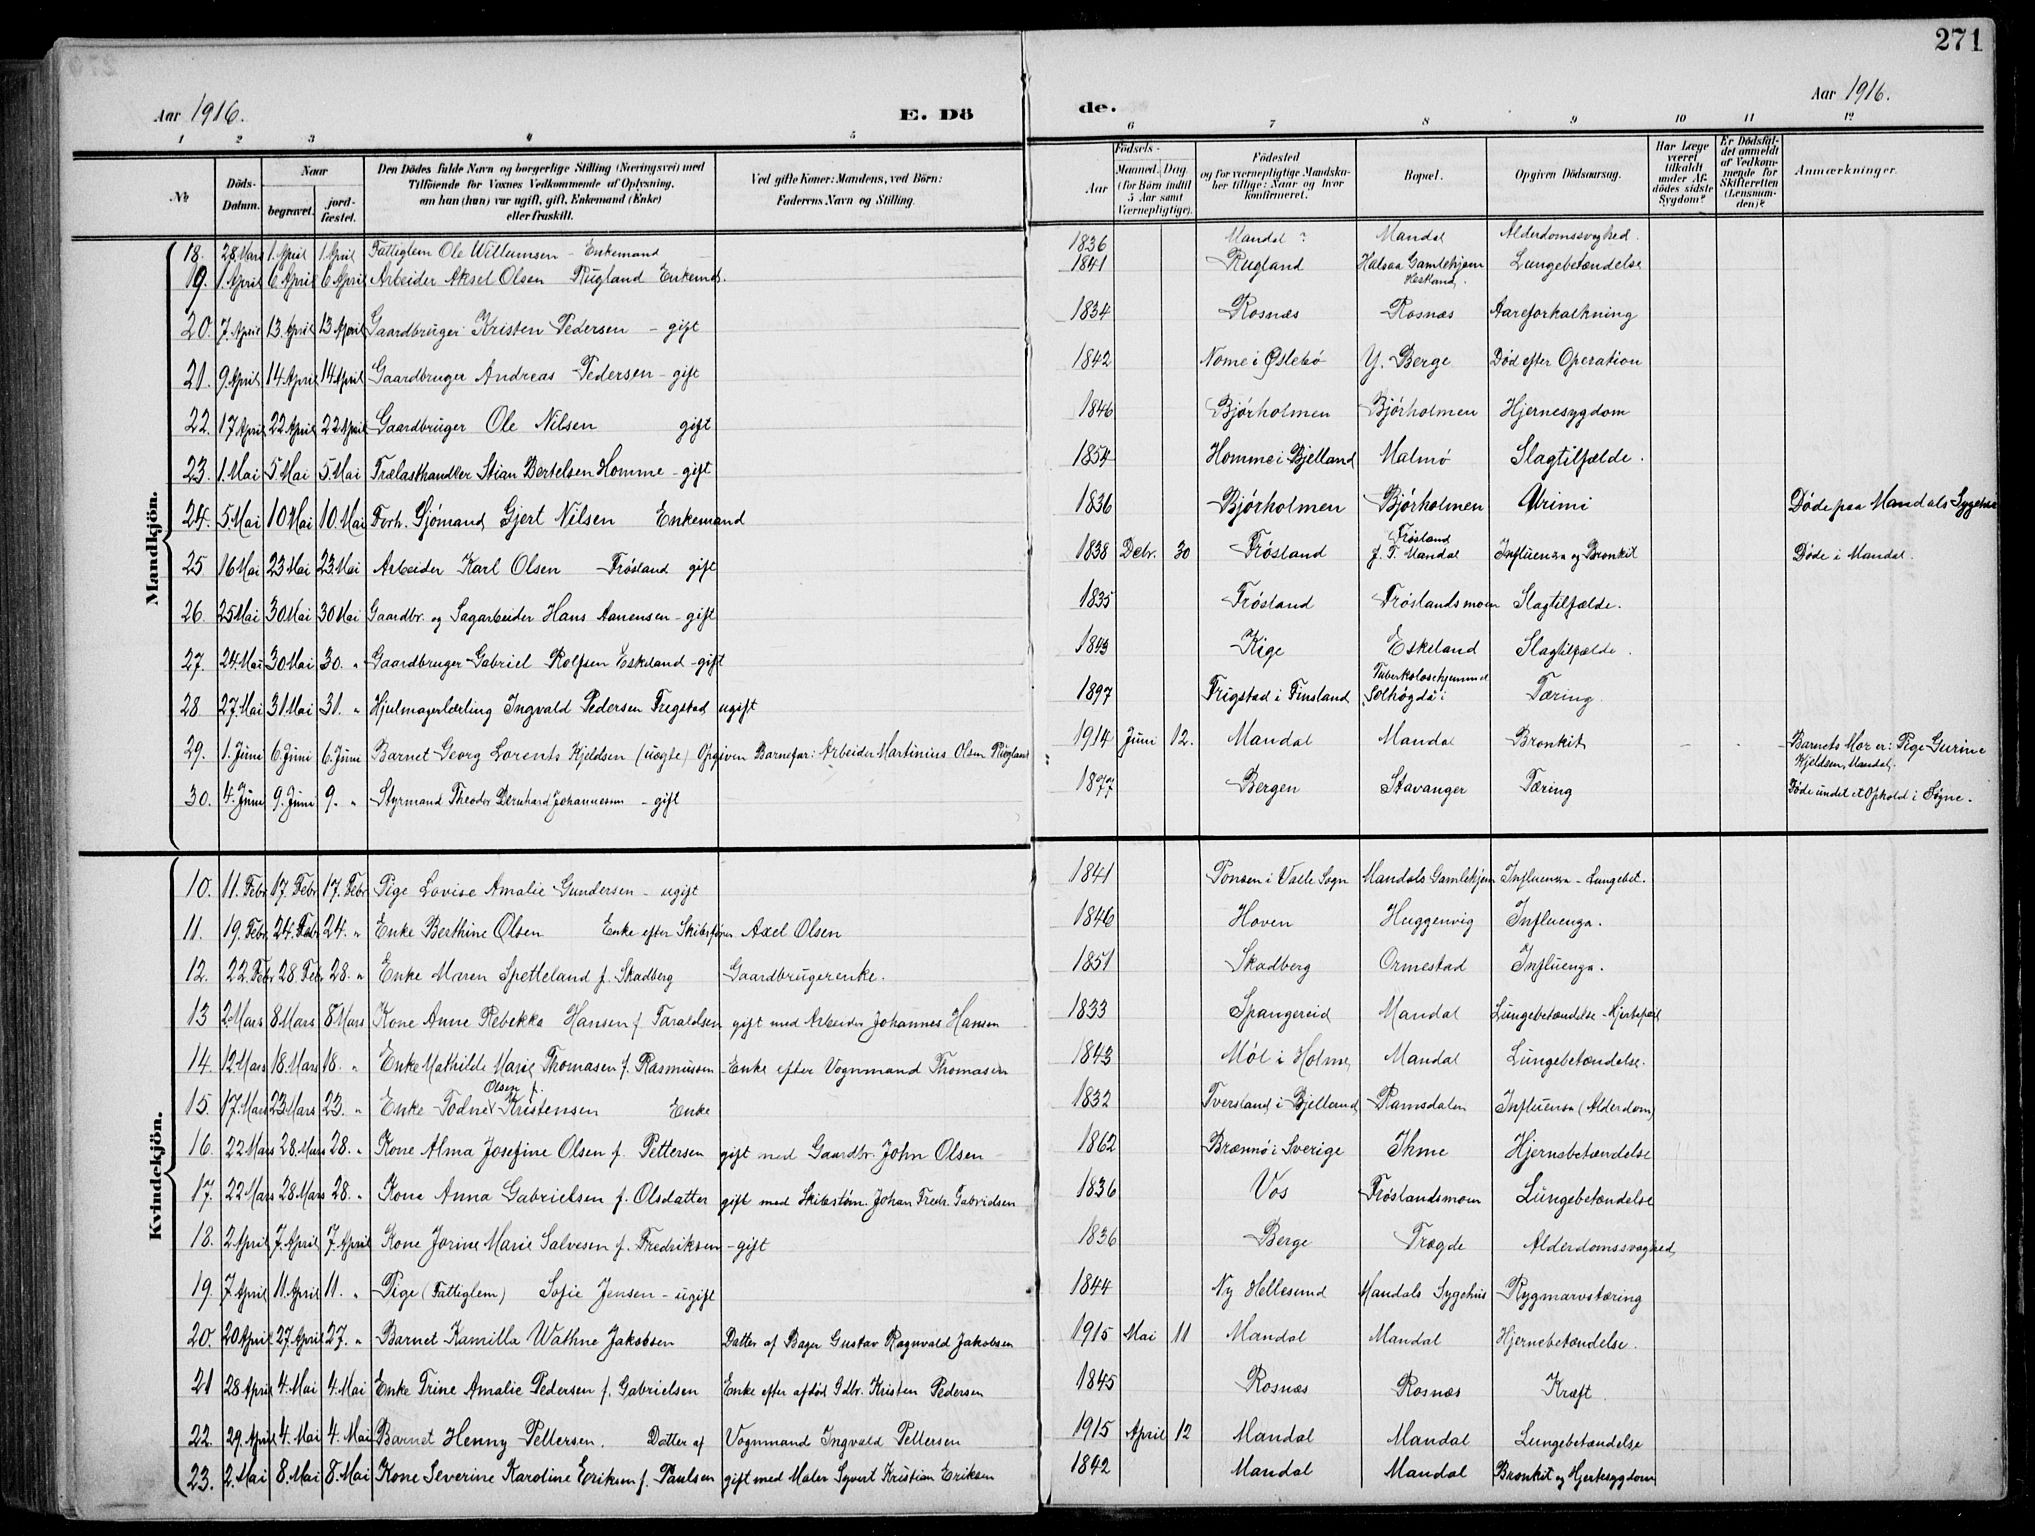 271
Aar 1916.
E. Dö
de.
Aar 1916.
1 2 3 4 5 6 7 8 9 10 11 12
№
Döds-Datum.
Naar
begravet.
jord-fæstet.
Den Dödes fulde Navn og borgerlige Stilling (Næringsvei) med
Tilföiende for Voxnes Vedkommende af Oplysning,
om han (hun) var ugift, gift, Enkemand (Enke)
eller fraskilt.
Ved gifte Koner: Mandens, ved Börn:
Faderens Navn og Stilling.
Födsels-
Aar
Maaned. Dag.
(for Börn indtil
5 Aar samt
Værnepligtige).
Födested
og for værnepligtige Mandska-
ber tillige: Naar og hvor
konfirmeret.
Bopæl.
Opgiven Dödsaarsag.
Har Læge
været
tilkaldt
under Af-
dödes sidste
Sygdom?
Er Dödsfal-
det anmeldt
af Vedkom-
mende for
Skifteretten
(Lensman-
den)?
Anmærkninger.
Mandkjön.
18. 28 Mars 1 April 1 April Fattiglem Ole Willumsen - Enkemand 1836 Mandal ? Mandal Alderdomssvaghed.
19. 1 April 6 April 6 April Arbeider Aksel Olsen Rugland Enkemd. 1841 Rugland Halsaa Gamlehjem Lungebetændelse
20. 7 April 13 April 13 April Gaardbruger Kristen Pedersen - gift 1834 Rosnæs Rosnæs Aareforkalkning
21. 9 April 14 April 14 April Gaardbruger Andreas Pedersen - gift 1842 Nome i Øslebø Y. Berge Död efter Operation
22. 17 April 22 April 22 April Gaardbruger Ole Nilsen gift 1846 Bjørholmen Bjørholmen Hjernesygdom
23. 1. Mai 5 Mai 5 Mai Trælasthandler Stian Bertelsen Homme - gift 1854 Homme i Bjelland Malmø Slagtilfælde.
24. 5 Mai 10 Mai 10 Mai Forh. Sjømand Gjert Nilsen Enkemand 1836 Bjørholmen Bjørholmen Urimi Döde paa Mandals Sygehus
25 16 Mai 23 Mai 23 Mai Arbeider Karl Olsen Frøsland gift 1838 Debr. 30 Frøsland Frøsland f. T. Mandal Influensa og Bronkit Döde i Mandal.
26. 25 Mai 30 Mai 30 Mai Gaardbr. og Sagarbeider Hans Aanensen - gift 1835 Frøsland Frøslandsmoen Slagtilfælde.
27. 24. Mai 30 Mai 30. " Gaardbruger Gabriel Rolfsen Eskeland - gift 1843 Kige Eskeland Slagtilfælde.
28 27. Mai 31 Mai 31. " Hjulmagerlærling Ingvald Pedersen Frigstad ugift 1897 Frigstad i Finsland Tuberkulosehjemmet Solhøgda i Tæring
29. 1. Juni 6 Juni 6. Juni Barnet Georg Lorents Kjeldsen (uægte) Opgiven Barnefar: Arbeider Martinius Olsen Rugland 1914 Juni 12. Mandal Mandal Bronkit - - Barnets Mor er: Pige Gurine
Kjeldsen, Mandal.
30. 4. Juni 9. Juni 9. " Styrmand Theodor Bernhard Johannessen - gift 1877 Bergen Stavanger Tæring Döde under et Ophold i Søgne.
Kvindekjön.
10. 11. Febr 17 Febr 17. Febr Pige Lovise Amalie Gundersen - ugift 1841 Ponsen i Valle Sogn Mandals Gamlehjem Influensa - Lungebet.
11. 19. Febr 24. Febr 24. " Enke Berthine Olsen Enke efter Skibsfører Axel Olsen 1846 Hoven Huggenvig Influenza.
12. 22 Febr 28 Febr 28. " Enke Maren Spetteland f. Skadberg Gaardbrugerenke. 1851 Skadberg Ormestad Influenza.
13 2 Mars 8 Mars 8 Mars Kone Anne Rebekka Hansen f. Taraldsen gift med Arbeider Johannes Hansen 1833 Spangereid Mandal Lungebetændelse - Hjertefeil
14. 12 Mars 18. Mars 18. " Enke Mathilde Marie Thomasen f. Rasmussen - Enke efter Vognmand Thomasen 1843 Möl i Holme Mandal Lungebetændelse.
15. 17. Mars 23 Mars 23. " Enke Todne Olsen f. Kristensen Enke 1832 Tversland i Bjelland Ramsdalen Influensa (Alderdom)
16. 22 Mars 28. Mars 28. " Kone Alma Josefine Olsen f. Pettersen gift med Gaardbr. John Olsen 1862 Brænnö i Sverige Ihme Hjernebetændelse
17. 22 Mars 28 Mars 28. " Kone Anna Gabrielsen f. Olsdatter gift med Skibstøm. Johan Fredr. Gabrielsen 1836 Vos Frøslandsmoen Lungebetændelse
18. 2 April 7. April 7. April Kone Jorine Marie Salvesen f. Fredriksen - gift 1836 Berge Tregde Alderdomssvaghed
19. 7 April 11 April 11. " Pige (Fattiglem) Sofie Jensen - ugift 1844 Ny Hellesund Mandals Sygehus Rygmarvstæring
20. 20 April 27. April 27. " Barnet Kamilla Wathne Jakobsen Datter af Bager Gustav Ragnvald Jakobsen 1915 Mai 11 Mandal Mandal Hjernebetændelse.
21 28 April 4. Mai 4. Mai Enke Trine Amalie Pedersen f. Gabrielsen Enke efter afdöd Gdbr. Kristen Pedersen 1845 Rosnæs Rosnæs Kræft
22. 29. April 4. Mai 4. Mai Barnet Henny Pettersen. Datter af Vognmand Ingvald Pettersen 1915 April 12 Mandal Mandal Lungebetændelse
23. 2. Mai 8. Mai 8. Mai Kone Severine Karoline Eriksen f. Paulsen gift med Maler Syvert Kristian Eriksen 1842 Mandal Mandal Bronkit og Hjertesygdom